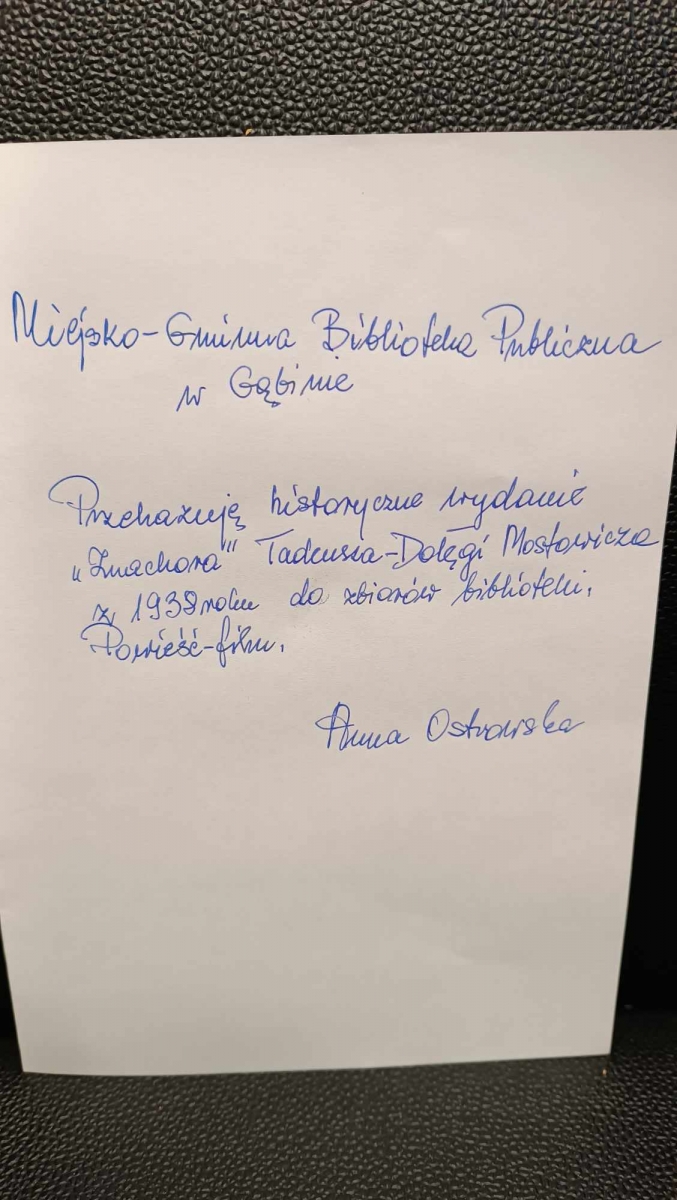 Miejsko-Gminna Biblioteka Publiczna
w Gąbinie
Przekazuję historyczne wydanie
„Znachora" Tadeusza-Dołęgi Mostowicza
z 1938 roku do zbiorów biblioteki.
Powieść-film.
Anna Ostrowska